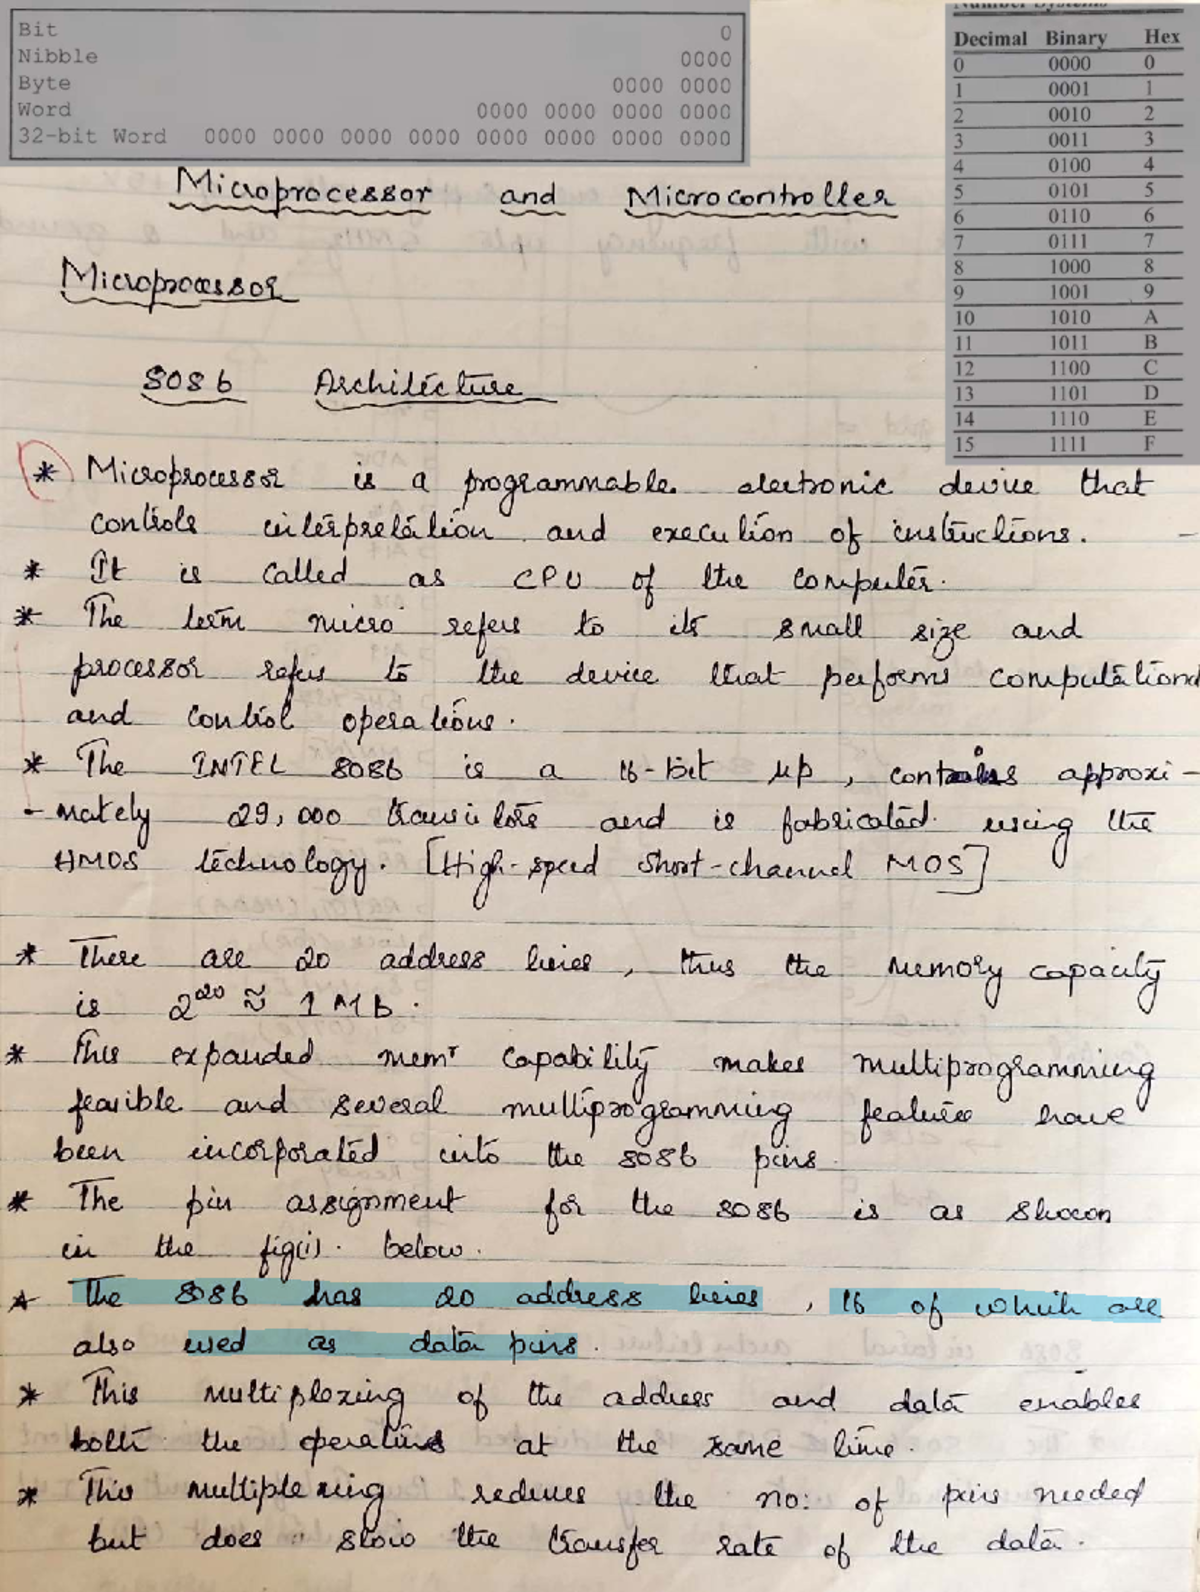 Bit 0
Nibble 0000
Byte 0000 0000
Word 0000 0000 0000 0000
32-bit Word 0000 0000 0000 0000 0000 0000 0000 0000
Number Systems
Decimal Binary Hex
0 0000 0
1 0001 1
2 0010 2
3 0011 3
4 0100 4
5 0101 5
6 0110 6
7 0111 7
8 1000 8
9 1001 9
10 1010 A
11 1011 B
12 1100 C
13 1101 D
14 1110 E
15 1111 F
Microprocessor and Microcontroller
Microprocessor
8086 Architecture
* Microprocessor is a programmable electronic device that
controls interpretation and execution of instructions.
* It is called as CPU of the computer.
* The term micro refers to its small size and
processor refers to the device that performs computational
and control operations.
* The INTEL 8086 is a 16-bit μp, contains approxi-
-mately 29,000 transistors and is fabricated using the
HMOS technology. [High-speed short-channel MOS]
* There are 20 address lines, thus the memory capacity
is 2^20 ≈ 1 Mb.
* This expanded memr capability makes multiprogramming
feasible and several multiprogramming features have
been incorporated into the 8086 pins.
* The pin assignment for the 8086 is as shown
in the fig(i). below.
* The 8086 has 20 address lines, 16 of which are
also used as data pins.
* This multiplexing of the address and data enables
both the operations at the same time.
* This multiplexing reduces the no: of pins needed
but does slow the transfer rate of the data.